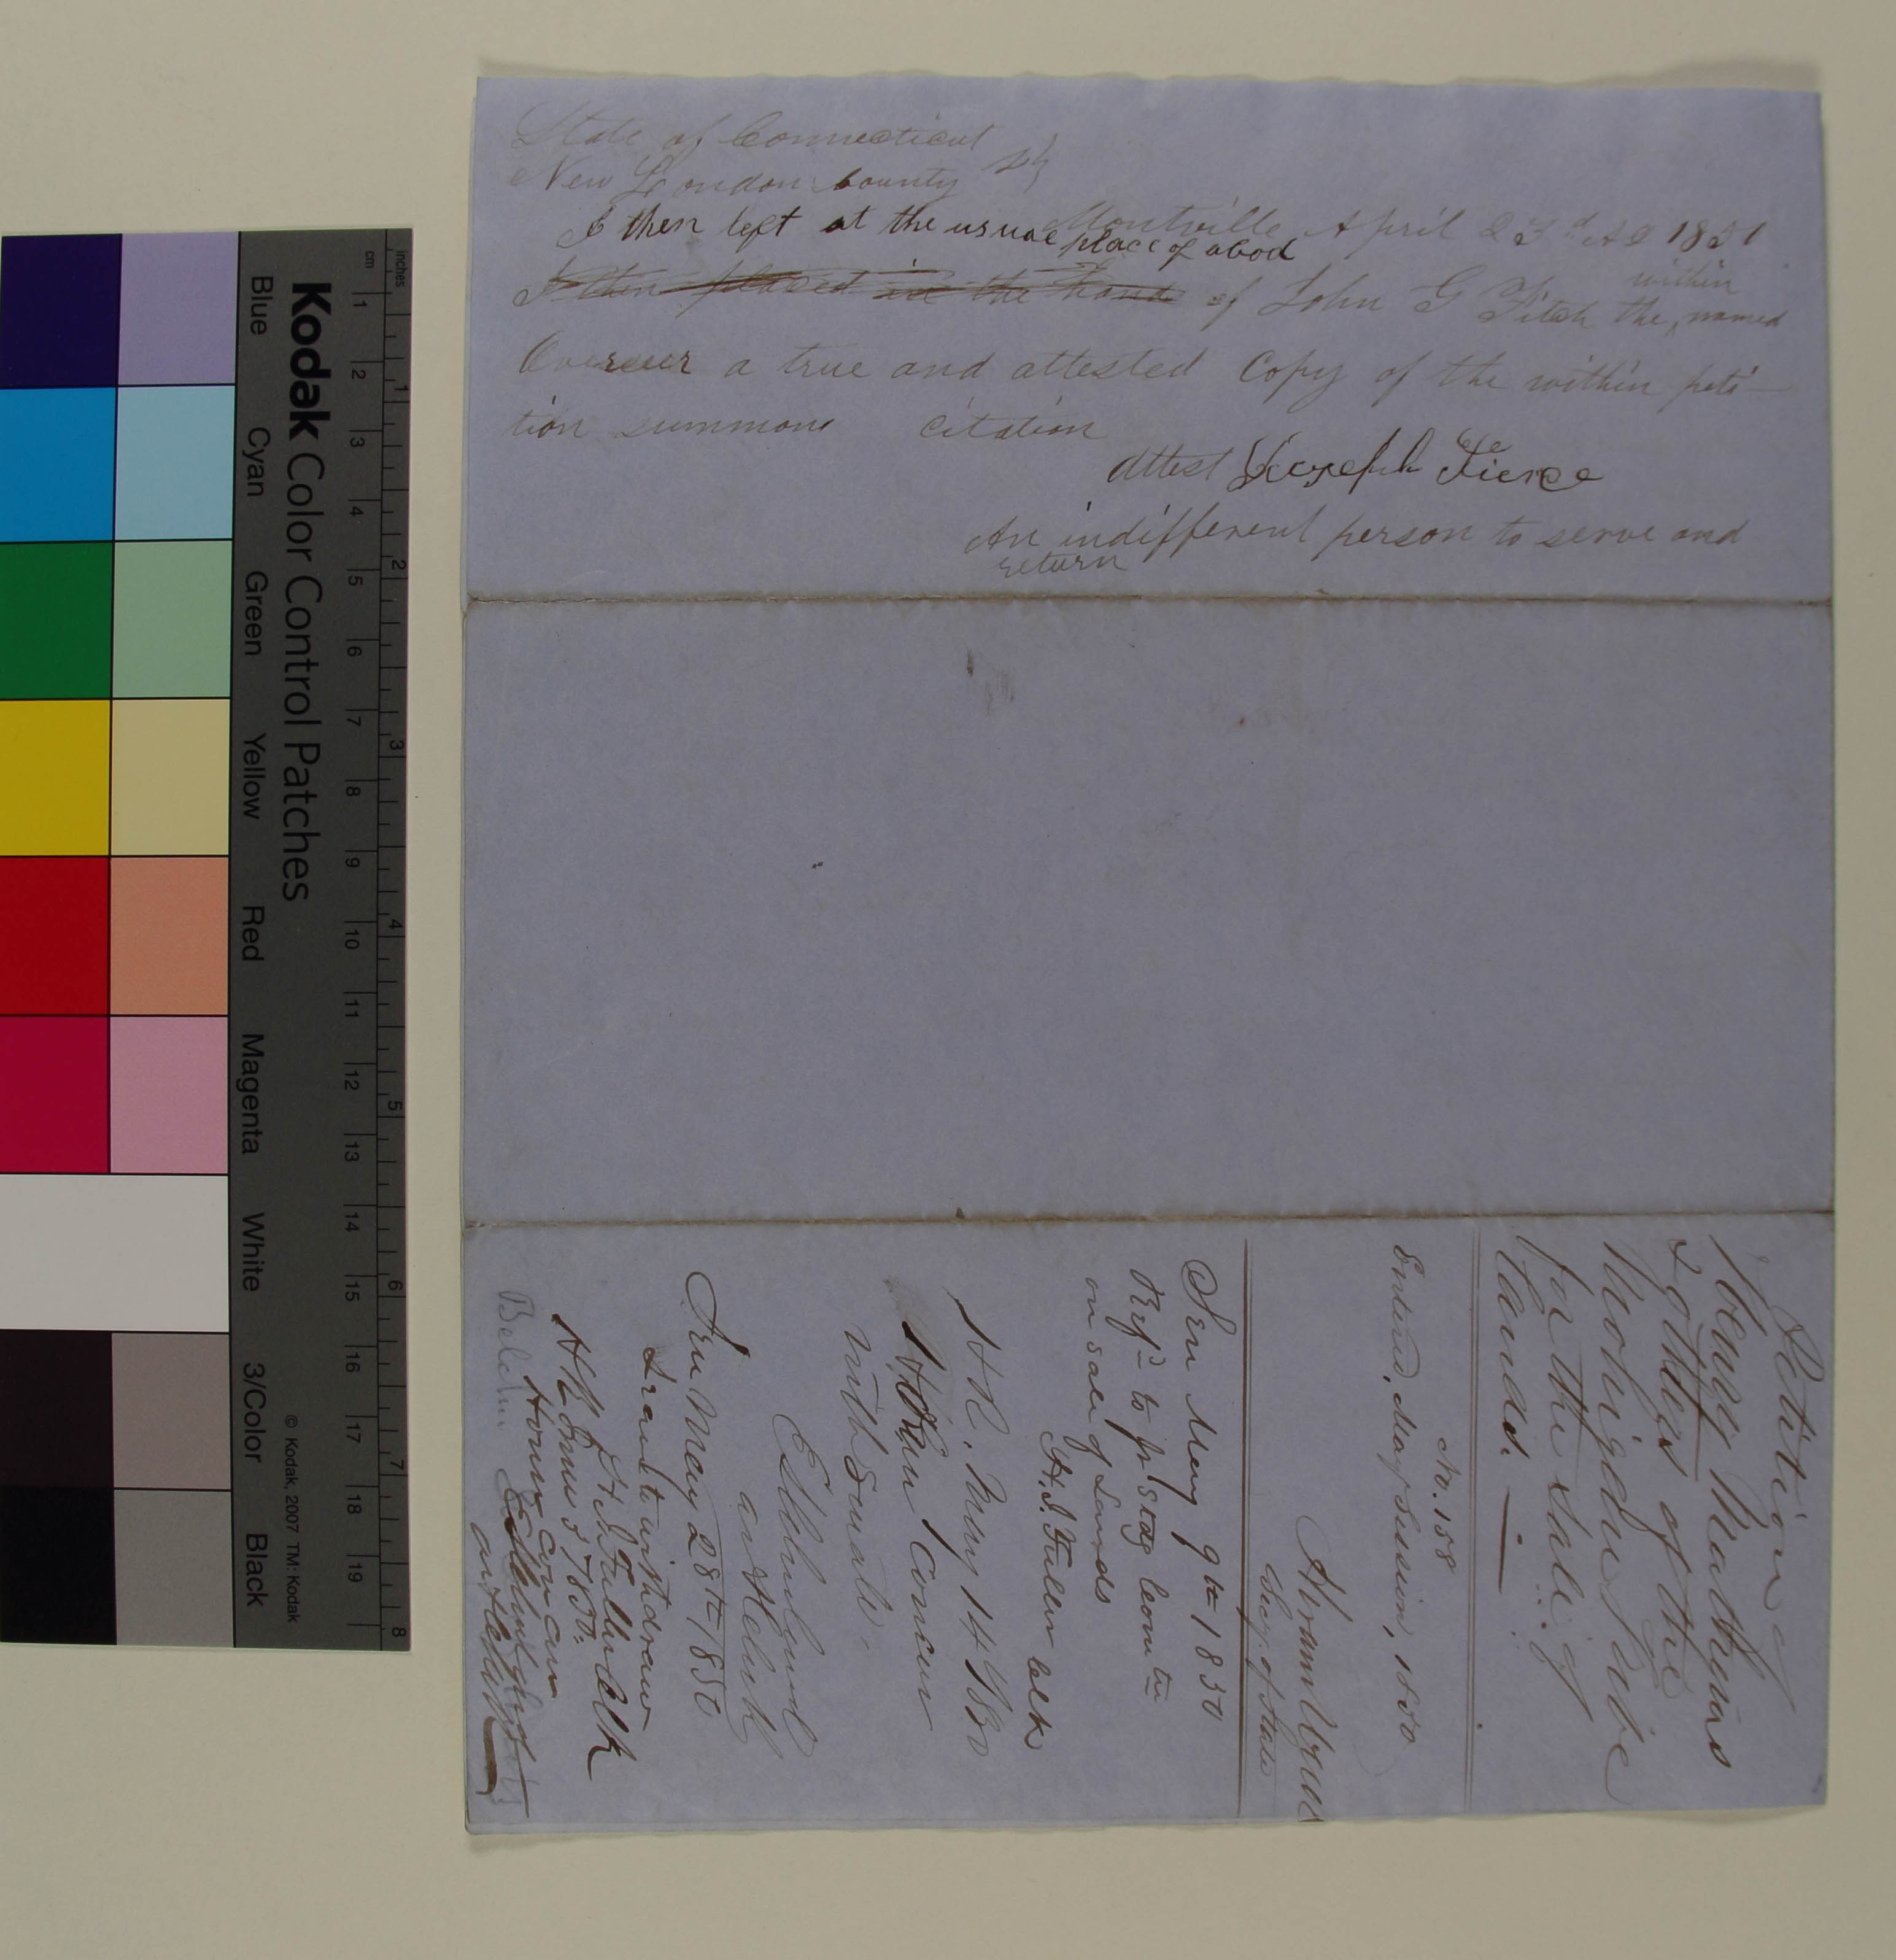 State of Connecticut
New London County ss
Montville April 23d AD 1850
I then left at the usual place of abod
I then placed in the hands of John G Fitch the within named
Overseer a true and attested Copy of the within peti
tion summons citation
Attest Joseph Fierce
An indifferent person to serve and
return
Petition of
Henry Matthews
& others of the
Mohigan Tribe
for the Sale of
Lands.
No. 158
Entered, May Session, 1850
Hiram Weed
Secy. of State
Sen May 9th 1850
Refd to Jt Stdg Comtee
on sale of Lands
H.S. Fuller Clk
HR. May 14 1850
Concur
with Senate.
ass Clerk
Sen May 28th 1850
Grant withdraw
Fuller Clk
HR June 3 1850.
Concur
ass Clerk
Kodak Color Control Patches
Blue Cyan Green Yellow Red Magenta White 3/Color Black
© Kodak, 2007 TM: Kodak
cm 1 2 3 4 5 6 7 8 9 10 11 12 13 14 15 16 17 18 19
inches 1 2 3 4 5 6 7 8